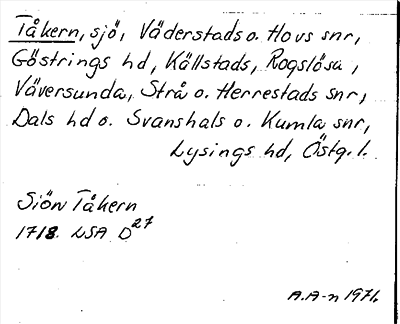 Tåkern, sjö, Väderstads o. Hovs snr,
Göstrings hd, Källstads, Rogslösa,
Väversunda, Strå o. Herrestads snr,
Dals hd o. Svanshals o. Kumla snr,
Lysings hd, Östg. l.
Siön Tåkern
1718. LSA D27
A.A-n 1971.